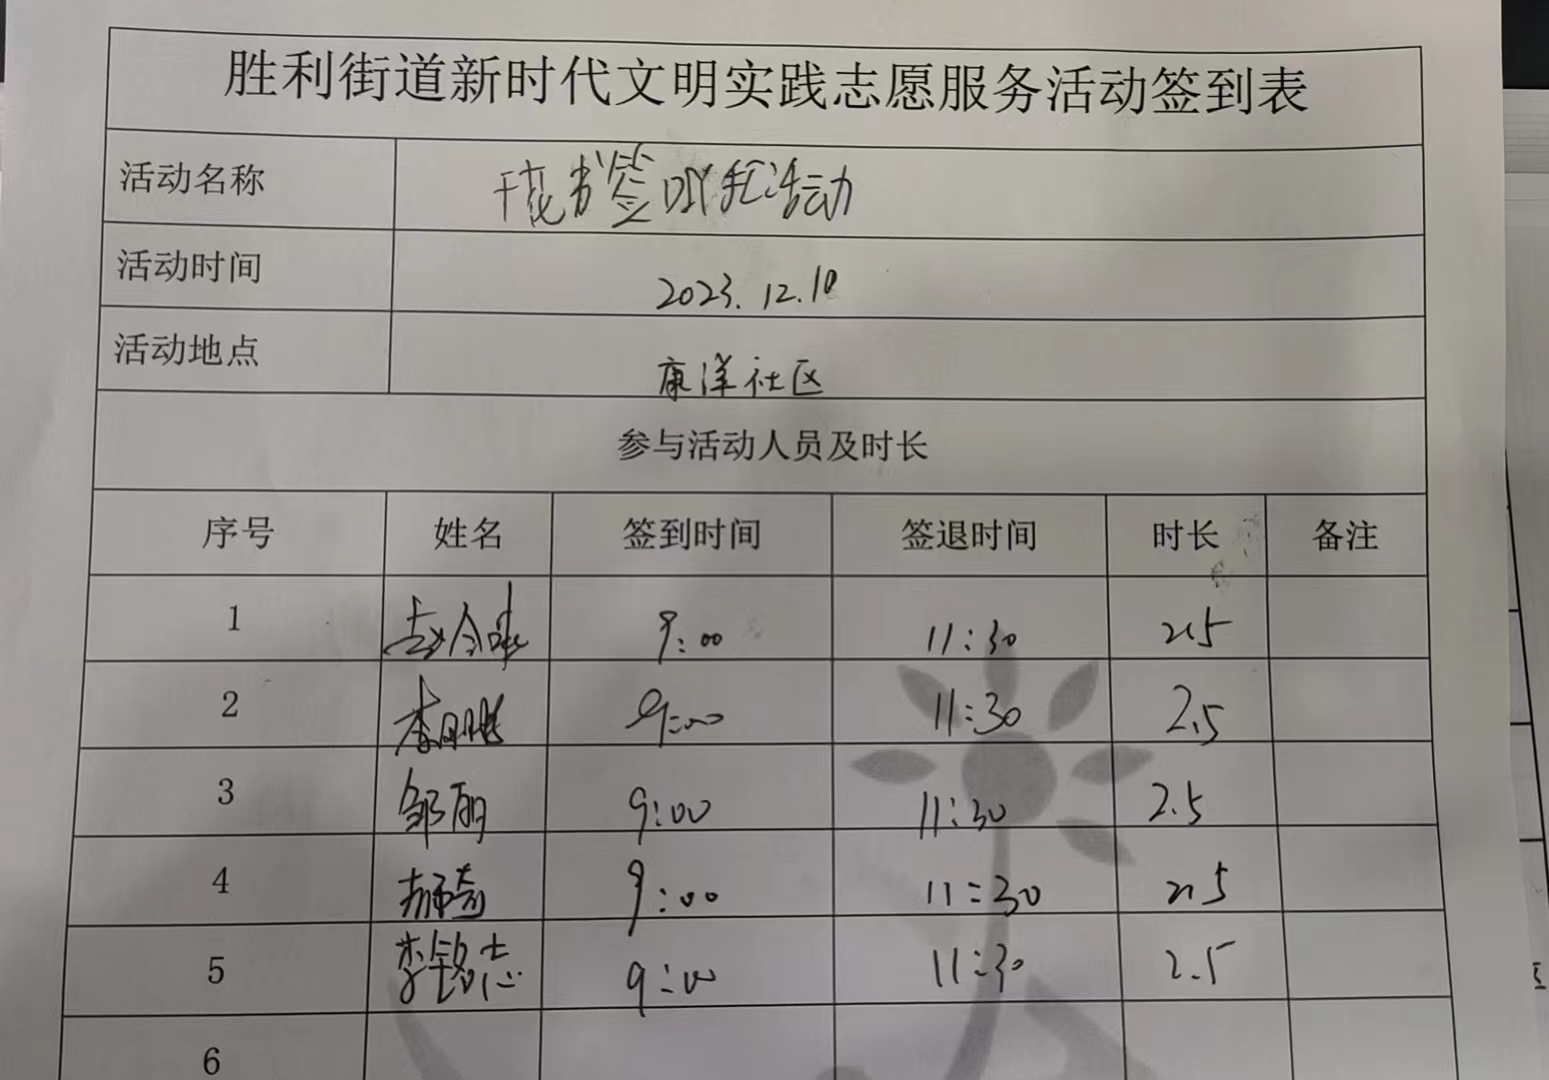 胜利街道新时代文明实践志愿服务活动签到表
活动名称 干花书签 活动
活动时间 2023.12.10
活动地点 康洋社区
参与活动人员及时长
序号 姓名 签到时间 签退时间 时长 备注
1 9:00 11:30 2.5
2 李 9:00 11:30 2.5
3 邹丽 9:00 11:30 2.5
4 9:00 11:30 2.5
5 李铭志 9:00 11:30 2.5
6